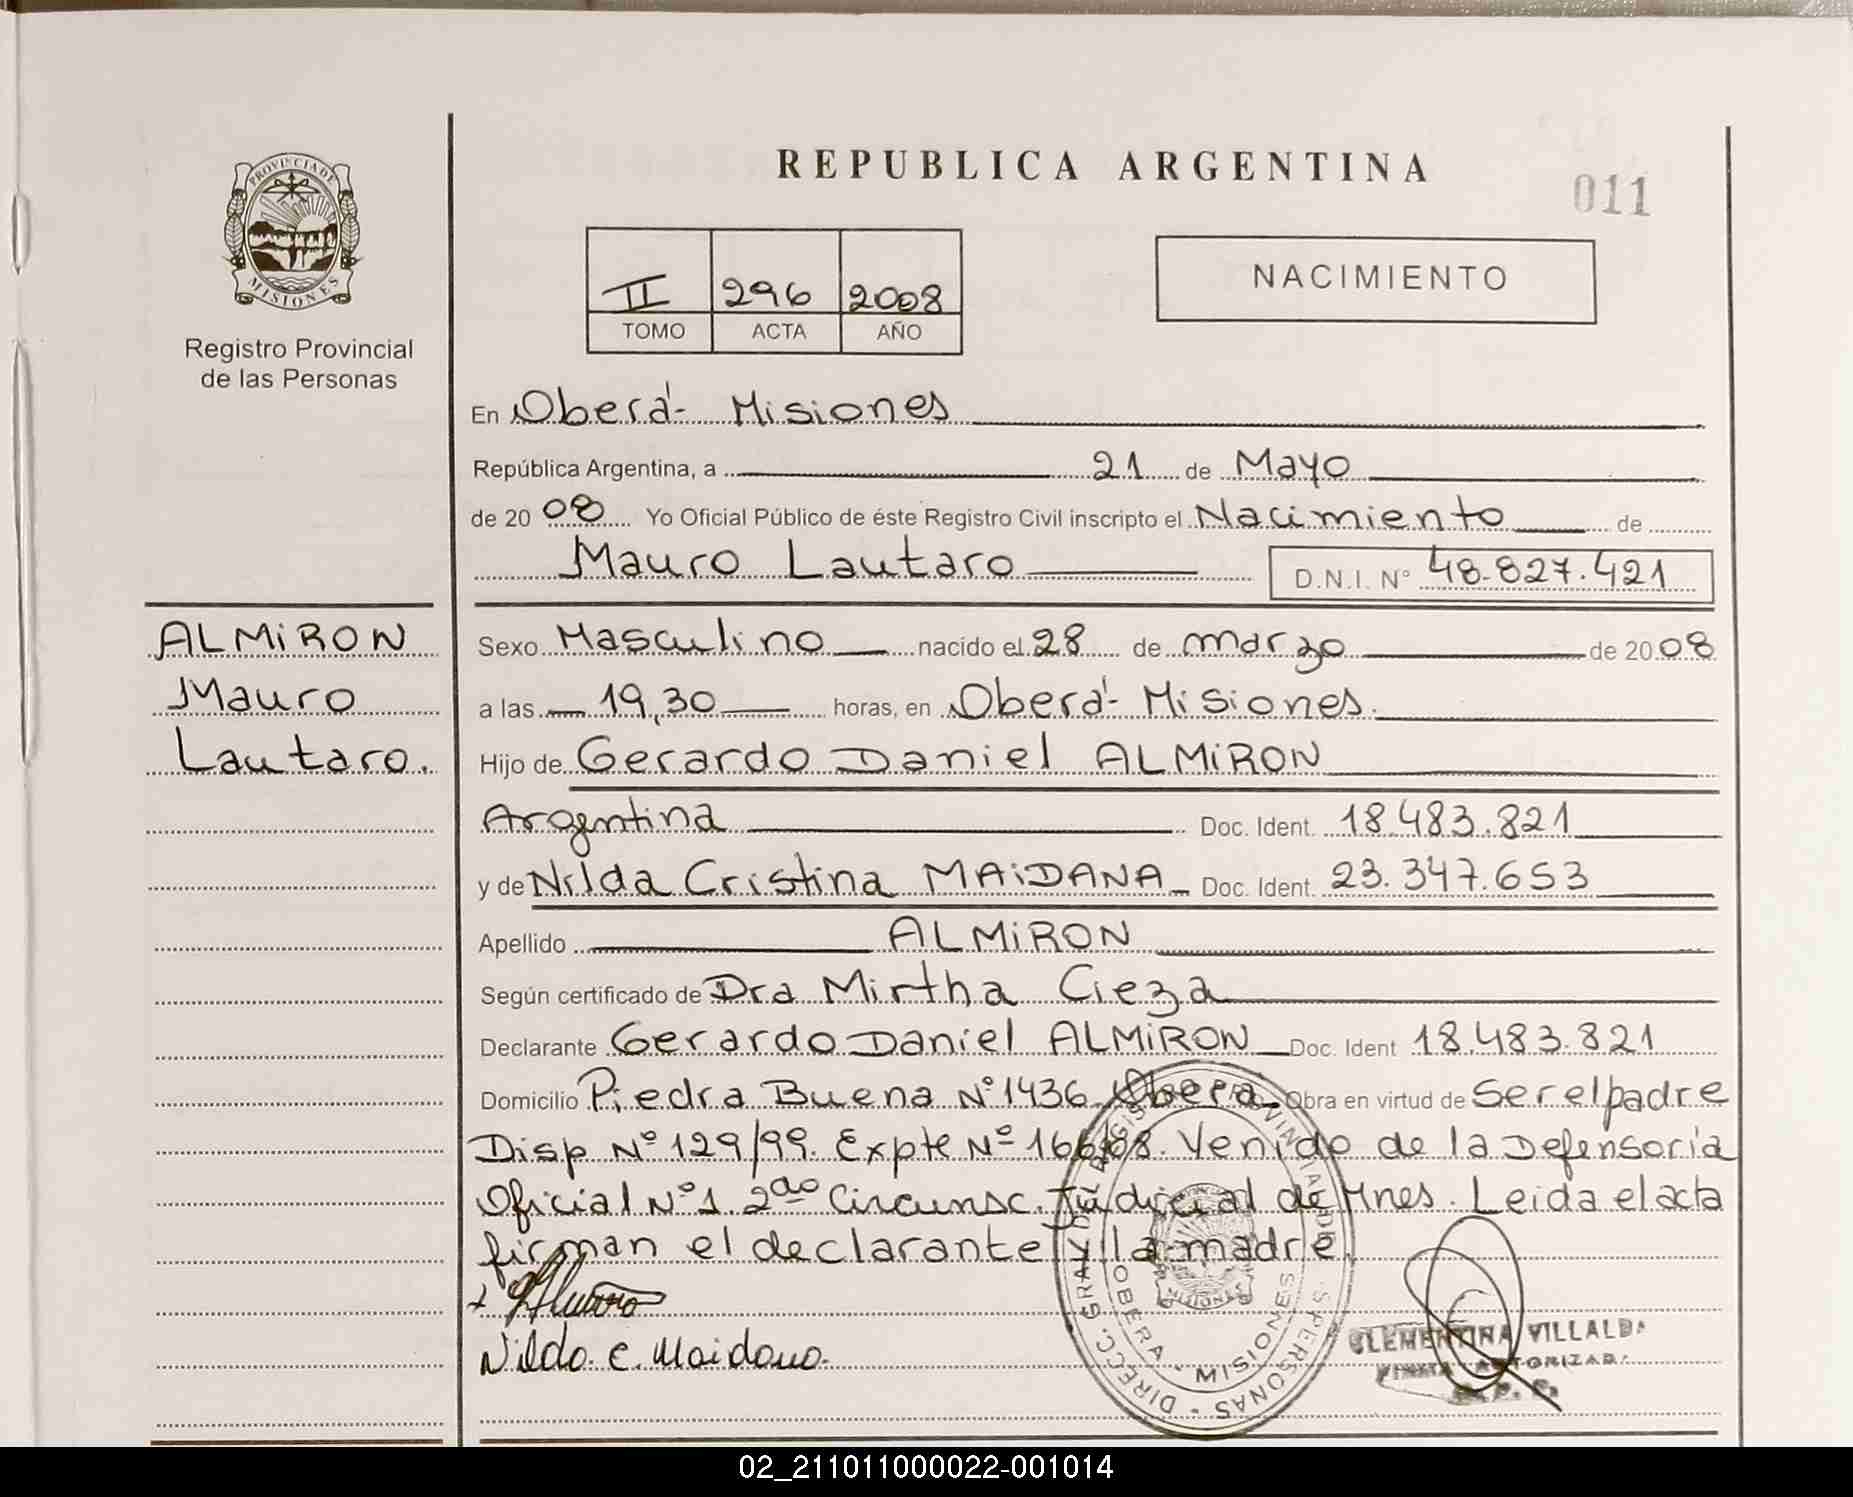 REPUBLICA ARGENTINA
011
PROVINCIA DE
MISIONES
Registro Provincial
de las Personas
II 296 2008
TOMO ACTA AÑO
NACIMIENTO
En Oberá - Misiones
República Argentina, a 21 de Mayo
de 2008 Yo Oficial Público de éste Registro Civil inscripto el Nacimiento de
Mauro Lautaro D.N.I. Nº 48.827.421
ALMiRON
Mauro
Lautaro.
Sexo Masculino nacido el 28 de marzo de 2008
a las 19,30 horas, en Oberá - Misiones.
Hijo de Gerardo Daniel ALMiRON
Argentina Doc. Ident. 18.483.821
y de Nilda Cristina MAiDANA Doc. Ident. 23.347.653
Apellido ALMiRON
Según certificado de Dra Mirtha Cieza
Declarante Gerardo Daniel ALMiRON Doc. Ident 18.483.821
Domicilio Piedra Buena Nº 1436 Oberá Obra en virtud de ser el padre
Disp Nº 129/99. Expte Nº 166/08. Venido de la Defensoría
Oficial Nº 1. 2da Circunsc. Judicial de Mnes. Leida el acta
firman el declarante y la madre.
Nilda C. Maidana.
OBERA - MISIONES
CLEMENTINA VILLALBA
FIRMA AUTORIZADA
02_211011000022-001014